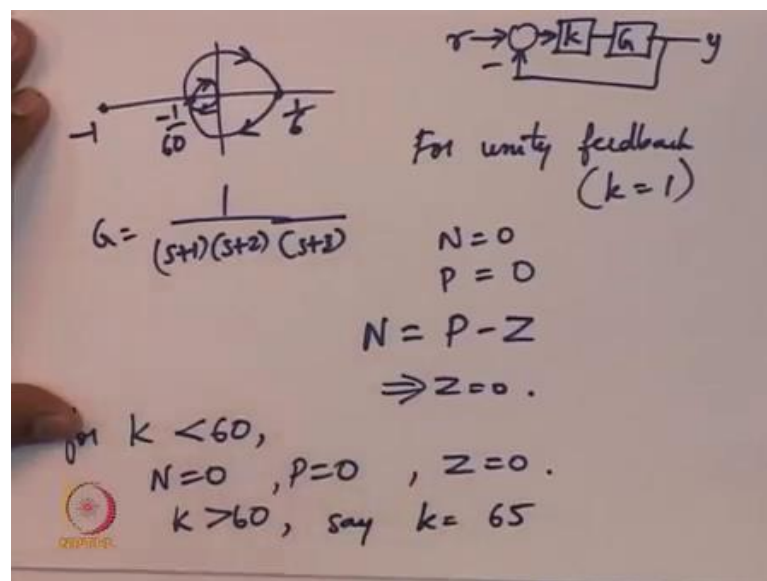 r k G y
-
-1 -1/60 1/6
For unity feedback
(k = 1)
G = 1/((s+1)(s+2)(s+3))
N = 0
P = 0
N = P - Z
⇒ Z = 0 .
for k < 60,
N = 0 , P = 0 , Z = 0 .
k > 60, say k = 65
NPTEL